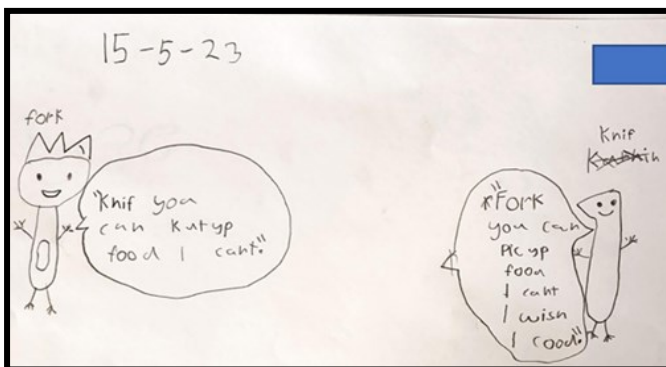 15-5-23
fork
"Knif you
can kutyp
food I cant."
Knif
"Fork
you can
Pic yp
food
I cant
I wish
I cood."